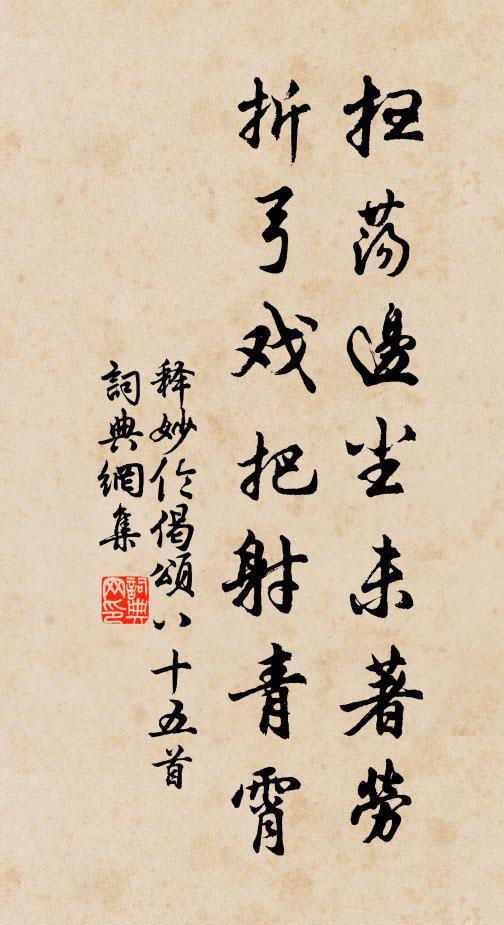 扫荡邊尘未著勞
折弓戏把射青霄
释妙伦偈頌八十五首
詞典網集
詞典
网印